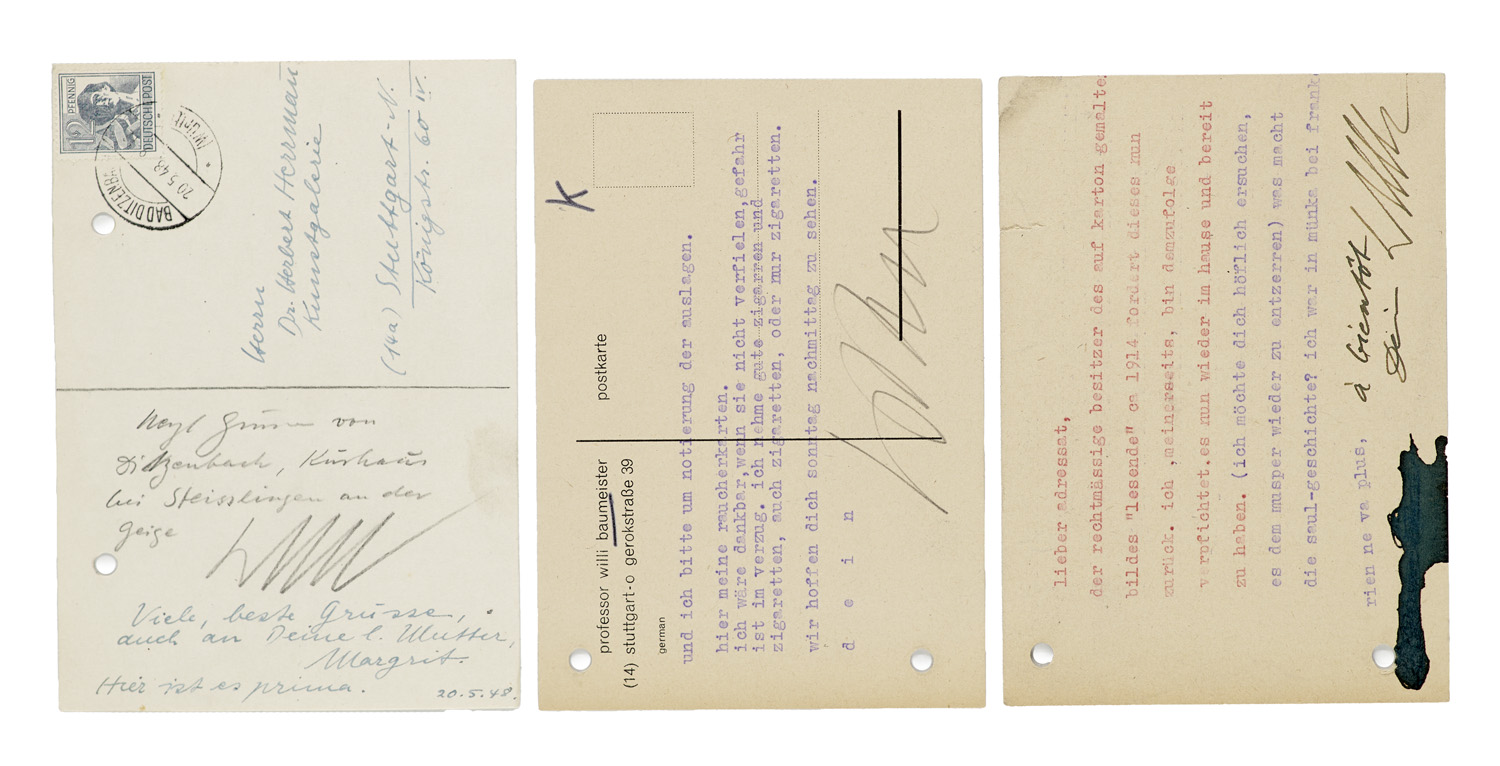 12
PFENNIG
DEUTSCHE POST
BAD DITZENBA
20.5.48.
(WÜRTT
Herrn
Dr. Herbert Herrmann
Kunstgalerie
(14a) Stuttgart-N.
Königstr. 60 IV.
von
Ditzenbach, Kurhaus
bei Steisslingen an der
Geige
Viele, beste Grüsse,
auch an Deine l. Mutter,
Margrit.
Hier ist es prima.
20.5.48.
K
postkarte
professor willi baumeister
(14) stuttgart-o gerokstraße 39
german
und ich bitte um notierung der auslagen.
hier meine raucherkarten.
ich wäre dankbar,wenn sie nicht verfielen,gefahr
ist im verzug. ich nehme gute zigarren und
zigaretten, auch zigaretten, oder nur zigaretten.
wir hoffen dich sonntag nachmittag zu sehen.
d e i n
lieber adressat,
der rechtmässige besitzer des auf karton gemalte
bildes "lesende" ca 1914 fordert dieses nun
zurück. ich ,meinerseits, bin demzufolge
verpfichtet.es nun wieder im hause und bereit
zu haben. (ich möchte dich höflich ersuchen,
es dem musper wieder zu entzerren) was macht
die saul-geschichte? ich war in münka bei frank
rien ne va plus,
à bientôt
Dein